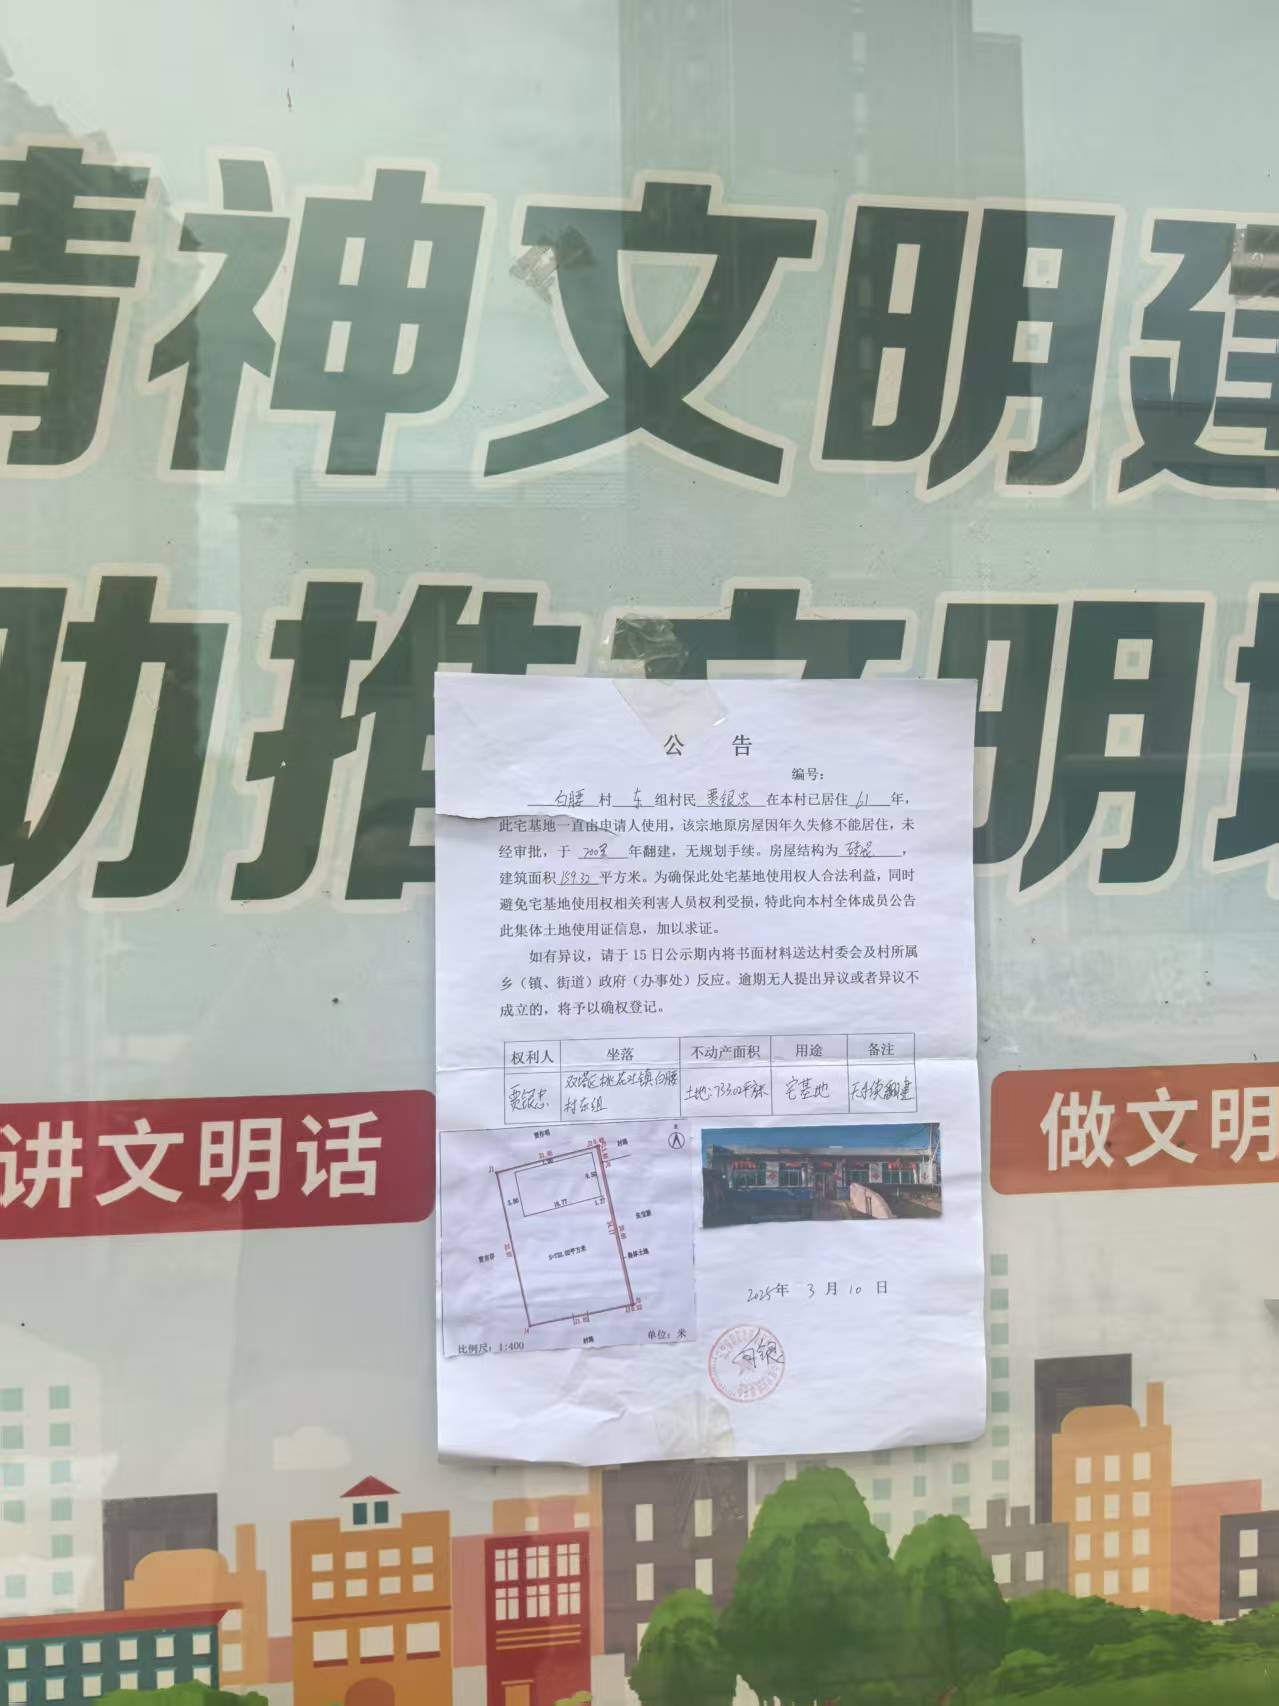 精神文明建
助推文明城
公 告
编号：
白腰 村 东 组村民 贾银忠 在本村已居住 61 年，
此宅基地一直由申请人使用，该宗地原房屋因年久失修不能居住，未
经审批，于 年翻建，无规划手续。房屋结构为 砖混 ，
建筑面积 159.32 平方米。为确保此处宅基地使用权人合法利益，同时
避免宅基地使用权相关利害人员权利受损，特此向本村全体成员公告
此集体土地使用证信息，加以求证。
如有异议，请于 15 日公示期内将书面材料送达村委会及村所属
乡（镇、街道）政府（办事处）反应。逾期无人提出异议或者异议不
成立的，将予以确权登记。
权利人 坐落 不动产面积 用途 备注
贾银忠 双塔区桃花吐镇白腰村东组 土地:733.02平方米 宅基地 无手续翻建
北
胡同
21.45
16.77
S=733.02平方米
集体土地
比例尺：1:400
单位：米
2025年 3 月 10 日
讲文明话
做文明